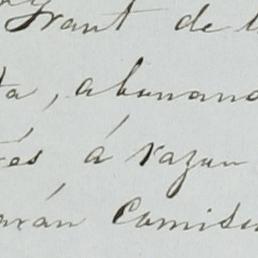 Grant de l
ta, abonand
rés á razon
arán Comisi